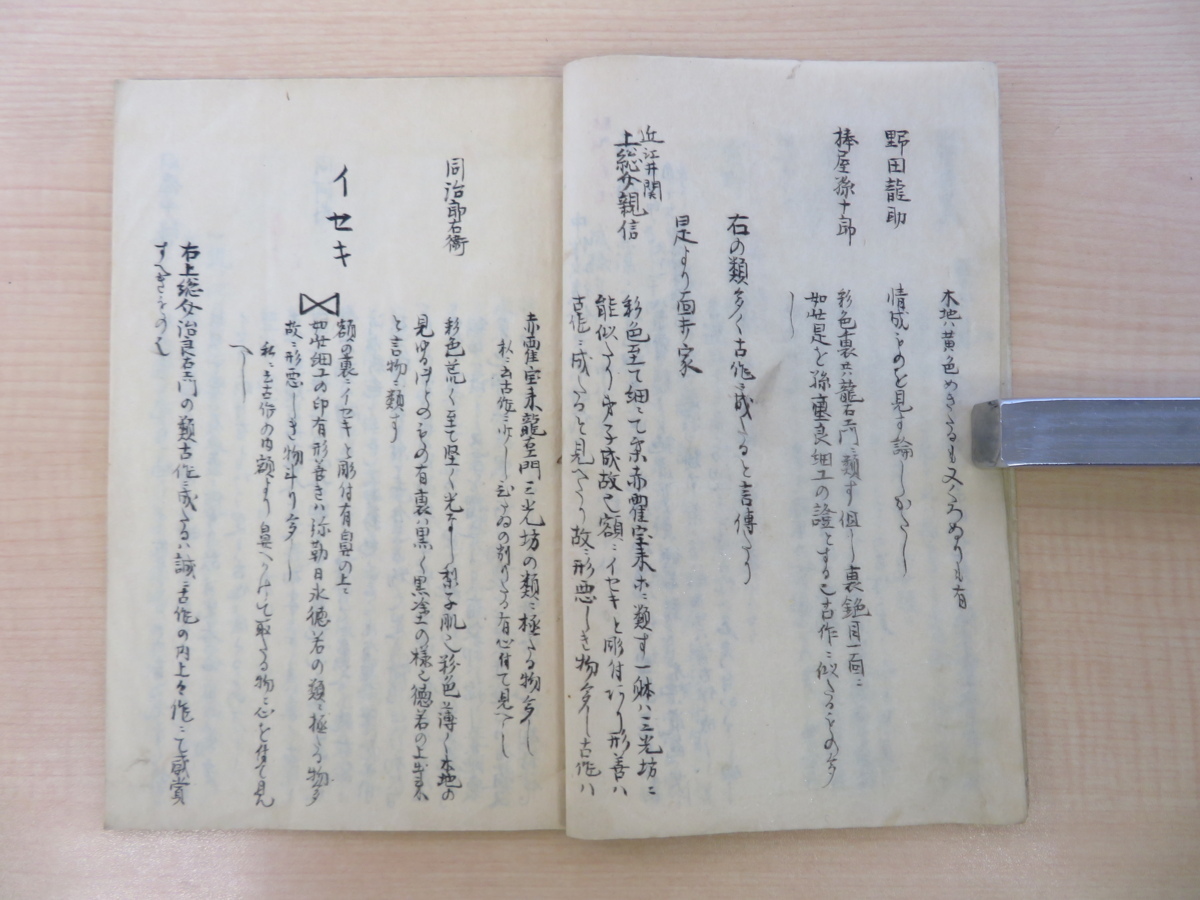 木地ハ黄色めきたるも又くろぬりも有
野田龍助
情成ものを見す論しかたし
棒屋孫十郎
彩色裏共龍右衛門ニ類す但し裏鉋目一面ニ
如此是を孫重良細工の證とする也古作ニ似たるもの多
し
右の類多く古作ニ成たると言傳たり
是より面井家
近江井関
上総介親信
彩色至て細にて赤鶴宝来ホニ類す一躰ハ三光坊ニ
能似たり 成故已額ニイセキと彫付あり形善ハ
古作ニ成たると見へたり故ニ形悪しき物多し古作ハ
赤鶴宝来龍右衛門三光坊の類ニ極たる物多し
私ニ云古作ニ少し 有心付て見へし
同治郎右衛
彩色荒く至て堅く光なし梨子肌也彩色薄く木地の
見ゆる もの有裏ハ黒く黒塗の様也徳若の上出来
と言物ニ類す
イセキ
額の裏ニイセキと彫付有鼻の上ニ
如此細工の印有形善きハ弥勒日氷徳若の類ニ極たる物多
故ニ形悪しき物斗り多し
私ニ云古作の内額より鼻へかけて取たる物ニ心を付て見
へし
右上総介治良右衛門の類古作ニ成たるハ誠ニ古作の内上々作ニて感賞
すへきもの也